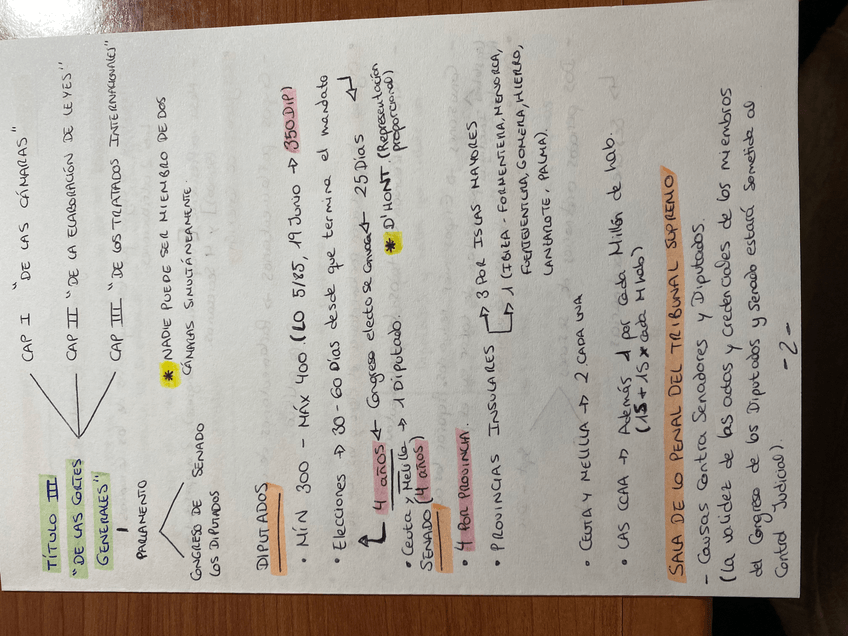 TÍTULO III
"DE LAS CORTES
GENERALES"
CAP I "DE LAS CÁMARAS"
CAP II "DE LA ELABORACIÓN DE LEYES"
CAP III "DE LOS TRATADOS INTERNACIONALES"
PARLAMENTO
CONGRESO DE LOS DIPUTADOS
SENADO
* NADIE PUEDE SER MIEMBRO DE DOS
CÁMARAS SIMULTÁNEAMENTE.
DIPUTADOS
• MÍN 300 - MÁX 400. (LO 5/85, 19 Junio → 350 DIP)
• Elecciones → 30-60 Días desde que termina el mandato
4 años ← Congreso electo se convoca ← 25 Días
• Ceuta y Melilla → 1 Diputado.
* D'HONT. (Representación
proporcional)
SENADO (4 años)
• 4 POR PROVINCIA.
• PROVINCIAS INSULARES → 3 POR ISLAS MAYORES
→ 1 (IBIZA - FORMENTERA, MENORCA,
FUERTEVENTURA, GOMERA, HIERRO,
LANZAROTE, PALMA).
• CEUTA Y MELILLA → 2 CADA UNA
• LAS CCAA → Además 1 por cada Millón de hab.
(1S + 1S x cada M hab)
SALA DE LO PENAL DEL TRIBUNAL SUPREMO
- Causas contra Senadores y Diputados.
(La validez de las actas y credenciales de los miembros
del Congreso de los Diputados y Senado estará sometida al
Control Judicial).
-2-